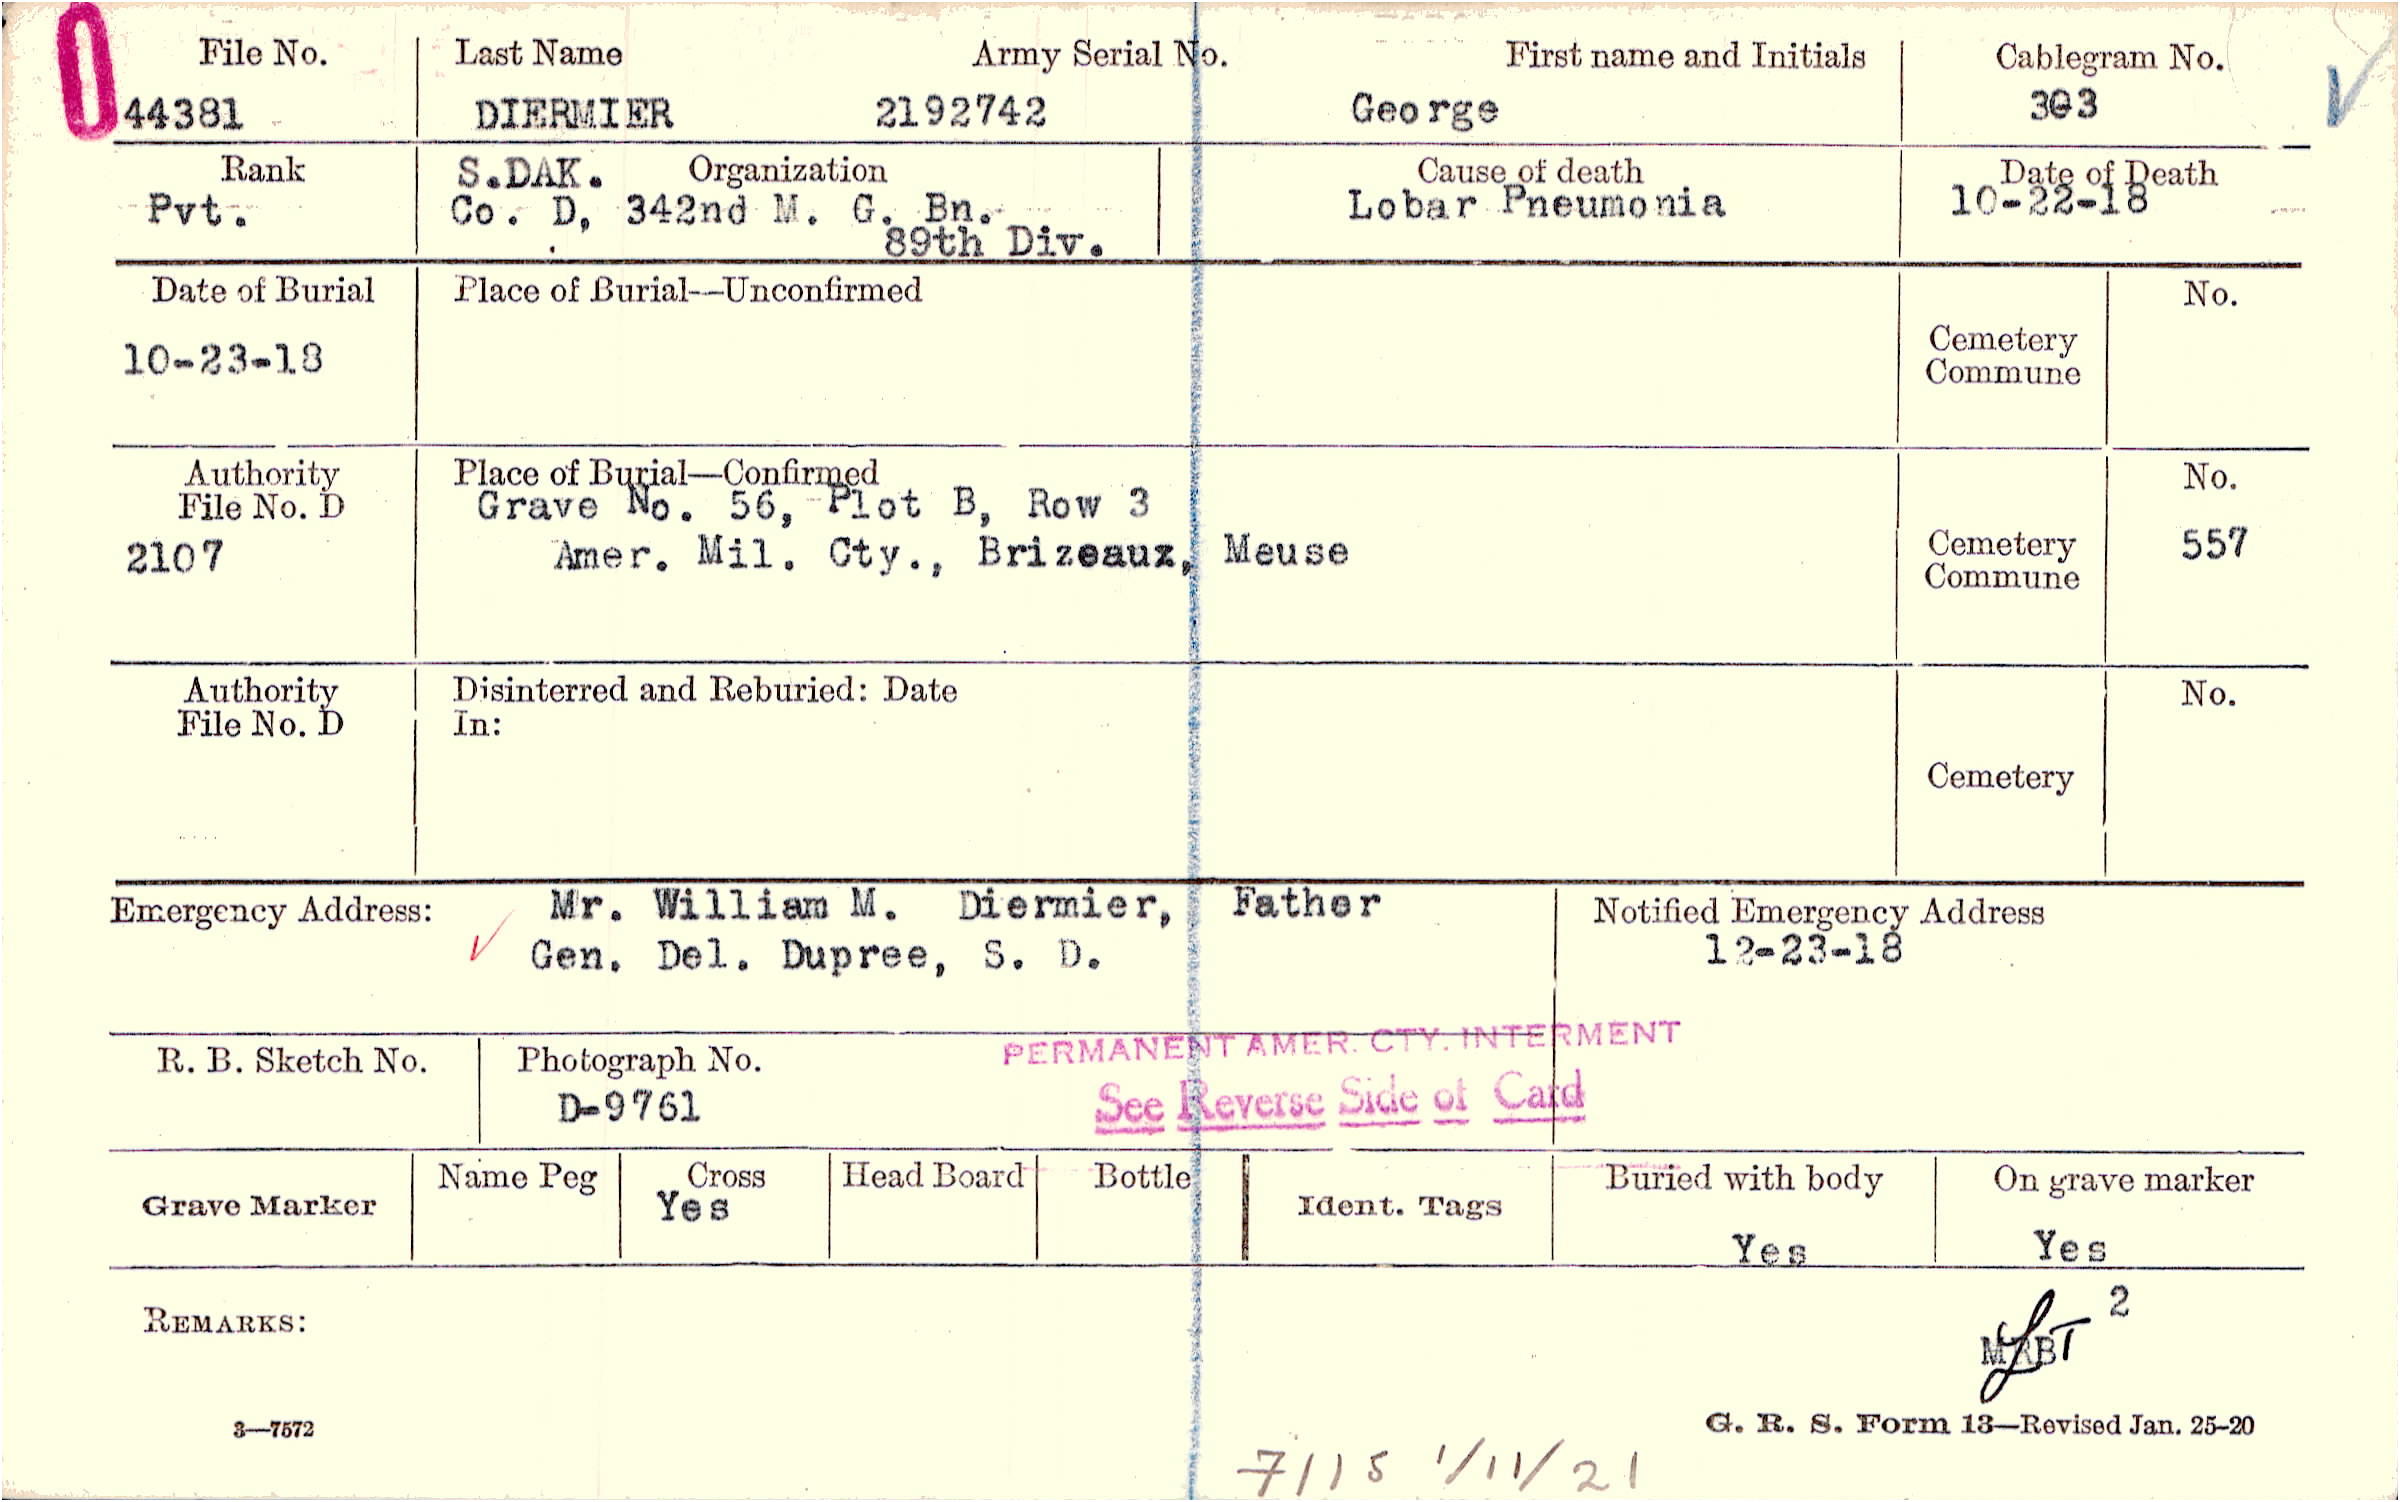 File No. Last Name Army Serial No. First name and Initials Cablegram No.
44381 DIERMIER 2192742 George 303
Rank S.DAK. Organization Cause of death Date of Death
Pvt. Co. D, 342nd M. G. Bn. Lobar Pneumonia 10-22-18
89th Div.
Date of Burial Place of Burial—Unconfirmed No.
10-23-18 Cemetery
Commune
Authority Place of Burial—Confirmed No.
File No. D Grave No. 56, Plot B, Row 3
2107 Amer. Mil. Cty., Brizeaux, Meuse Cemetery 557
Commune
Authority Disinterred and Reburied: Date No.
File No. D In:
Cemetery
Emergency Address: Mr. William M. Diermier, Father Notified Emergency Address
Gen. Del. Dupree, S. D. 12-23-18
PERMANENT AMER. CTY. INTERMENT
R. B. Sketch No. Photograph No.
D-9761 See Reverse Side of Card
Grave Marker Name Peg Cross Head Board Bottle Ident. Tags Buried with body On grave marker
Yes Yes Yes
2
REMARKS: MRB
3—7572 G. R. S. Form 13—Revised Jan. 25-20
7115 1/11/21